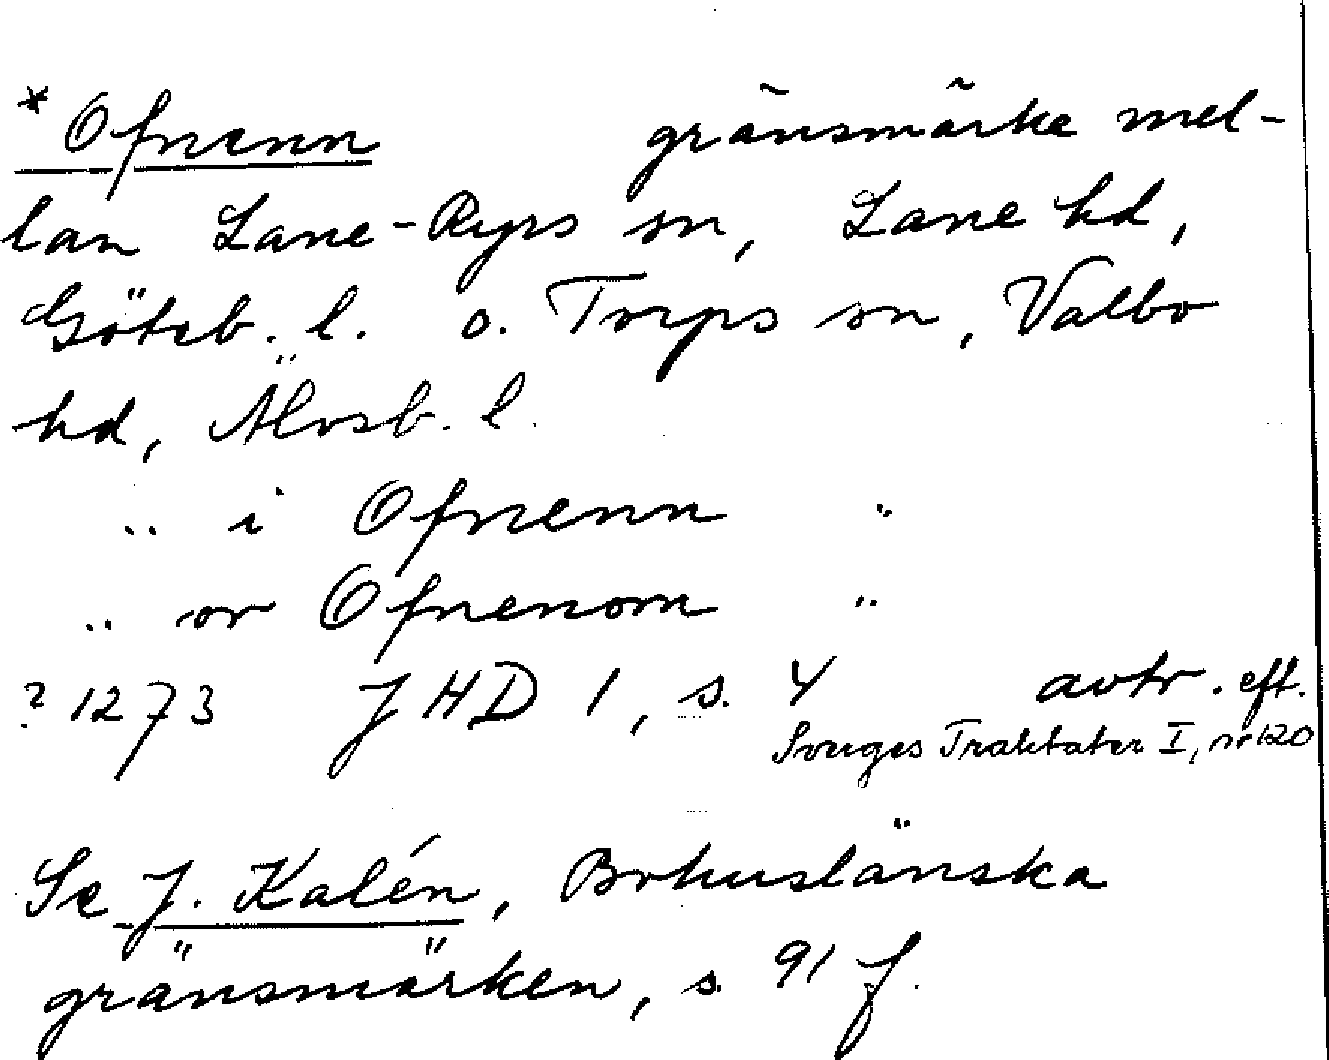 * Ofnenn gränsmärke mel-
lan Lane-Ryrs sn, Lane hd,
Göteb. l. o. Torps sn, Valbo
hd, Älvsb. l.
.. i Ofnenn ..
.. or Ofnenom ..
? 1273 JHD 1, s. 4 avtr. eft.
Sveriges Traktater I, nr 120
Se J. Kalén, Bohuslänska
gränsmärken, s. 91 f.